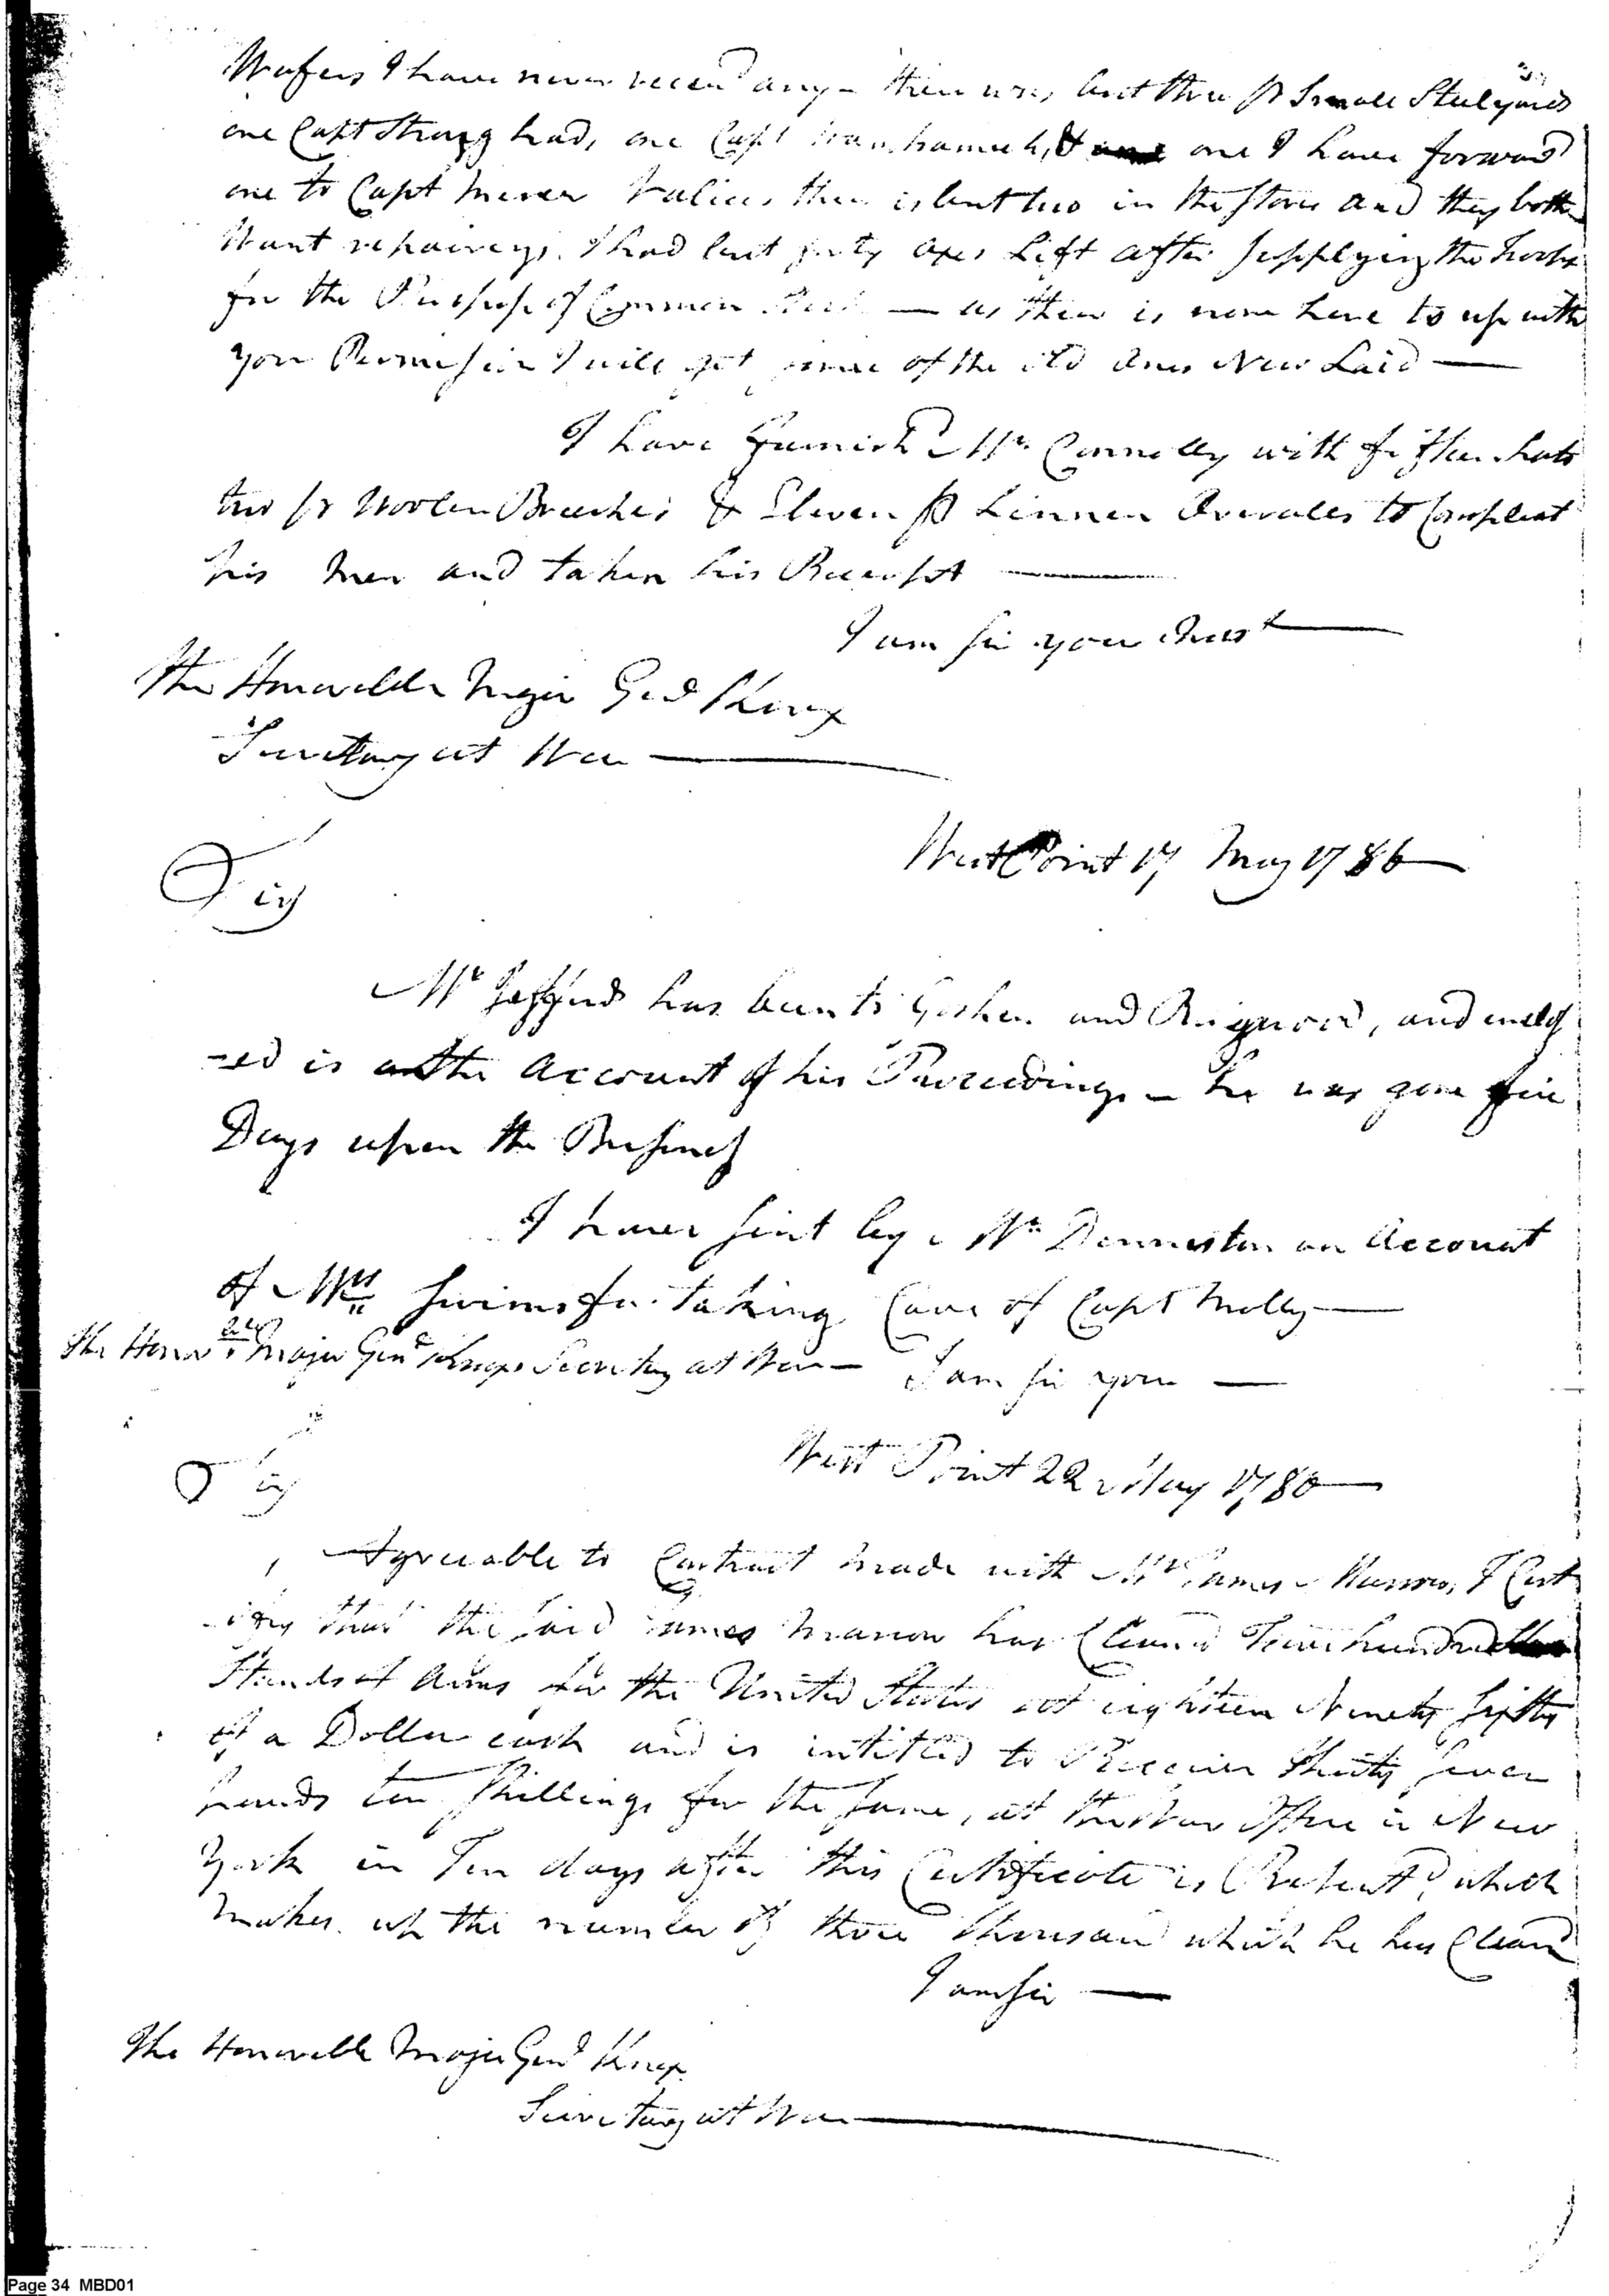 Wafers I have never recd any - there was but three pr Small Steelyards
one Capt Strong had, one Capt & one I have forward
one to Capt Mercer there is but two in the Stores and they both
Want repairing. I had but forty Axes Left after supplying the Troops
for the Purpose of Common - as there is none here to use with
your Permission I will get some of the old Ones New Laid
I have Furnishd Mr Connolly with fifteen hats
two pr Woolen Breeches & Eleven pr Linnen Overalls to Compleat
his Men and taken his Receipt
I am sir your Obust
The Honorable Major Genl Knox
Secretary at War
West Point 17 May 1786
Sir
Mr has been to Goshen and Ringwood, and inclos
-ed is the Account of his Proceedings - he was gone five
Days upon the Business
I have sent by Mr Denniston an Account
of Mrs Swims for taking Care of Capt Molly
The Honorable Major Genl Knox Secretary at War - I am sir your
West Point 22 May 1786
Sir
Agreeable to Contract made with Mr James Munrow, I Cert
-ify that the said James Manrow has Cleand Two hundred
Stands of Arms for the United States at eighteen Ninety fifths
of a Dollar each and is intitled to Receive Thirty seven
Pounds ten Shillings for the same, at the War Office in New
York in Ten days after this Certificate is Presentd which
makes up the number of three thousand which he has Cleand
I am sir
The Honorable Major Genl Knox
Secretary at War
Page 34 MBD01